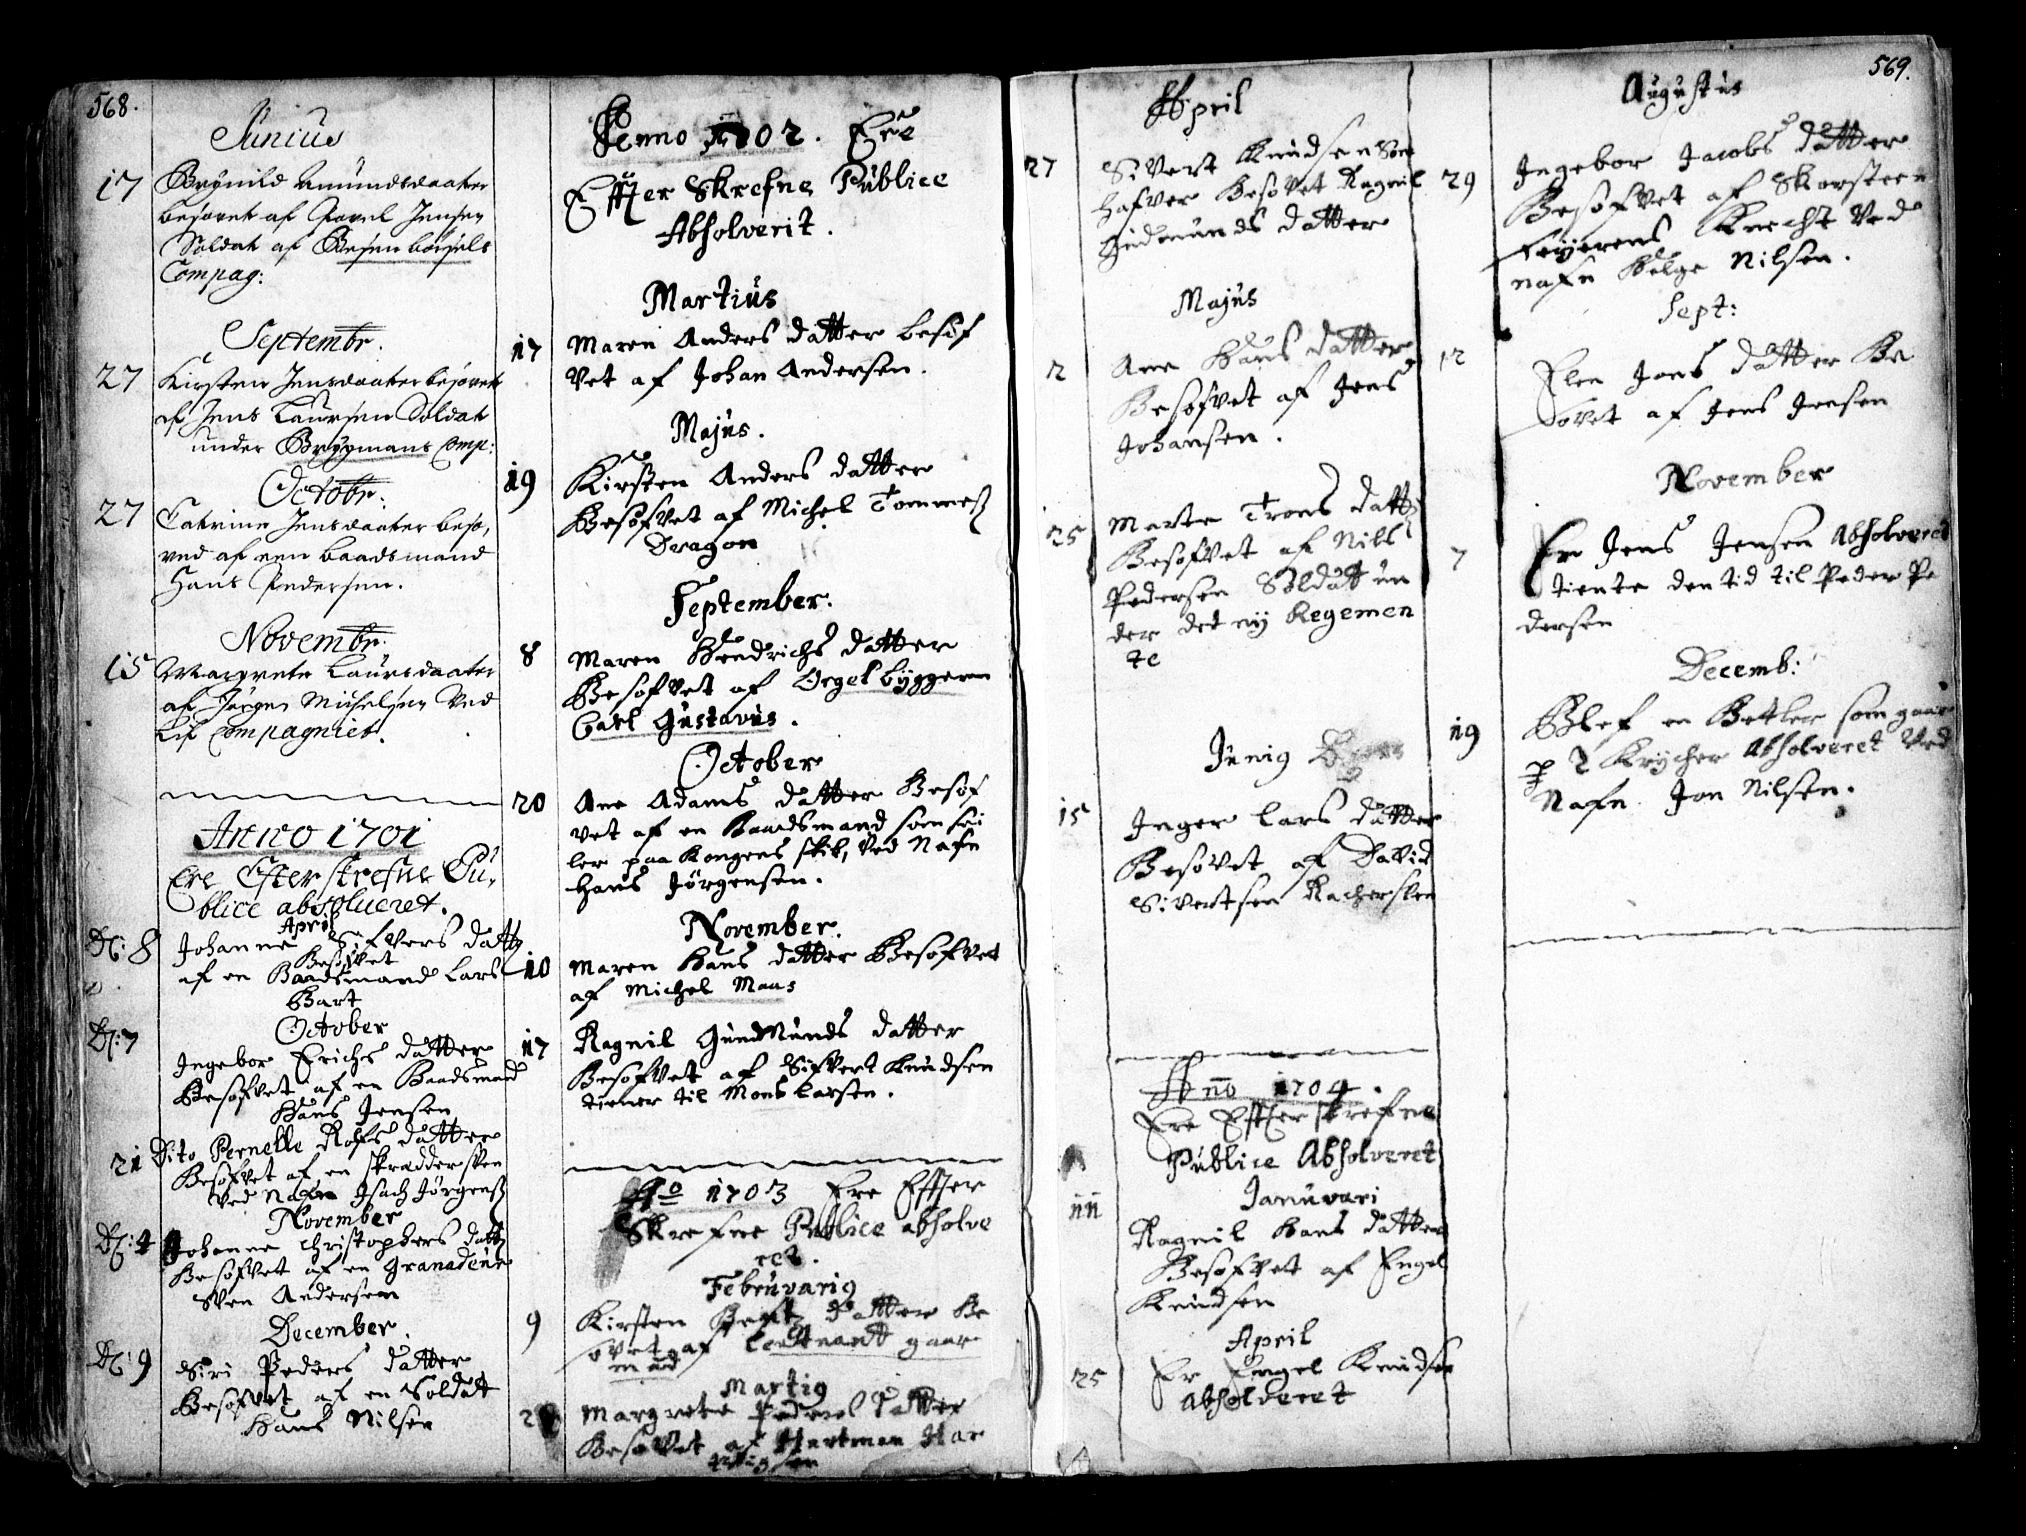 568.
Junius
17 Brynild Amundsdaatter
besovet af Povel Jensen
Soldat af
Compag:
Septembr.
27 Kirsten Jensdaatter besovet
af Jens Laursen Soldat
under Brygmans Comp:
Octobr:
27 Catrine Jensdaatter beso,
ved af een baadsmand
Hans Pedersen.
Novembr.
15 Margrete Laursdaatter
af Jörgen Michelsen Ved
Lif Compagniet.
Anno 1701
Ere Efter skrefne Pu,
blice absolueret.
April
D: 8 Johanne Sifvers datt
Besofvet
af en Baadsmand Lars
Bart
October
D: 7
Ingebor Erichs datter
Besofvet af en Baadsmand
Hans Jensen
21 Dito Pernelle Rolfs datter
Besofvet af en skrædder sven
Ved Nafn Isach Jörgens
November
D: 4 Johanne Christophers datt
Besofvet af en Granadeur
Sven Andersen
December.
D: 9 Siri Peders datter
Besofvet af en Soldat
Hans Nilsen
Anno 1702. Ere
Efter Skrefne Publice
Absolverit.
Martius
17 Maren Anders datter besof
vet af Johan Andersen.
Majus.
19 Kirsten Anders datter
Besofvet af Michel Tommes
Dragon
September.
8 Maren Hendrichs datter
Besofvet af Orgelbyggeren
Carl Gustavus.
October
20 Ane Adams datter Besof
vet af en Baadsmand som sei
ler paa Kongens skib, Ved Nafn
Hans Jörgensen.
November.
10 Maren Hans datter Besofvet
af Michel Maas
17 Ragnil Gundmunds datter
Besofvet af Sifvert Knudsen
tiener til Mons Larsen.
Ao 1703 Ere Efter
Skrefne Publice absolve
ret.
Februvarig
9 Kirsten datter Be
sovet af Leutnant gaar
mand
Martig
2 Margrete Peders datter
Besovet af Hartman Har
569.
April
27 Sivert Knudsen Som
hafver Besovet Ragnil
Gudmunds datter
Majus
2 Ane Hans datter
Besofvet af Jens
Johansen.
25 Marte Trons datt
Besofvet af Nils
Pedersen Soldat un
der det ny Regemen
te
Junig
15 Inger Lars datter
Besovet af David
Sivertsen
Ano 1704.
Ere Efter skrefne
Publice Absolveret
Januvari
11
Ragnil Hans datter
Besofvet af Engel
Knudsen
April
25 Er Engel Knudsen
Absolveret
Augustus
29 Ingebor Jacobs datter
Besofvet af Skorsteen
Feyerens Knecht Ved
nafn Helge Nilsen.
Sept:
12 Elen Jons datter Be
sovet af Jens Jensen
November
7 Er Jens Jensen Absolveret
tiente den tid til Peder Pe
dersen
Decemb:
19 Blef en Betler som gaar
p 2 Krycher Absolveret Ved
Nafn Jon Nilsen.